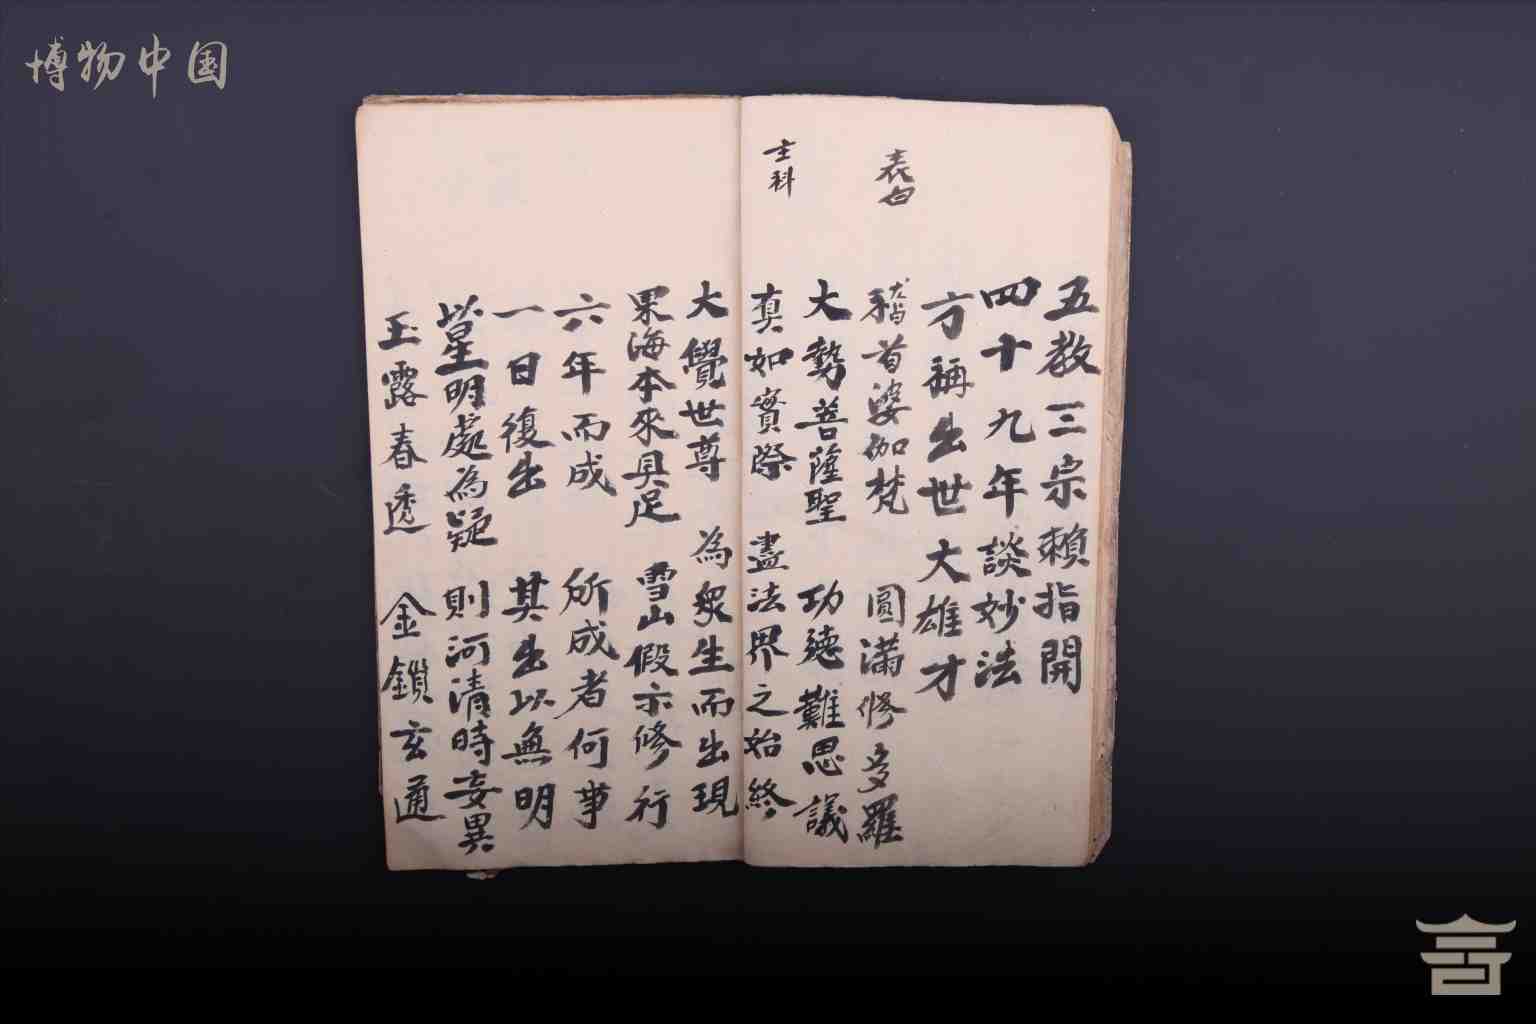 博物中国
五教三宗賴指開
四十九年談妙法
方稱出世大雄才
表白
稽首婆伽梵 圓滿修多羅
大勢菩薩聖 功德難思議
主科
真如實際 盡法界之始終
大覺世尊 為衆生而出現
果海本來具足 雪山假示修行
六年而成 所成者何事
一日復出 其出以無明
以星明處為疑 則河清時妄異
玉露春透 金鎖玄通